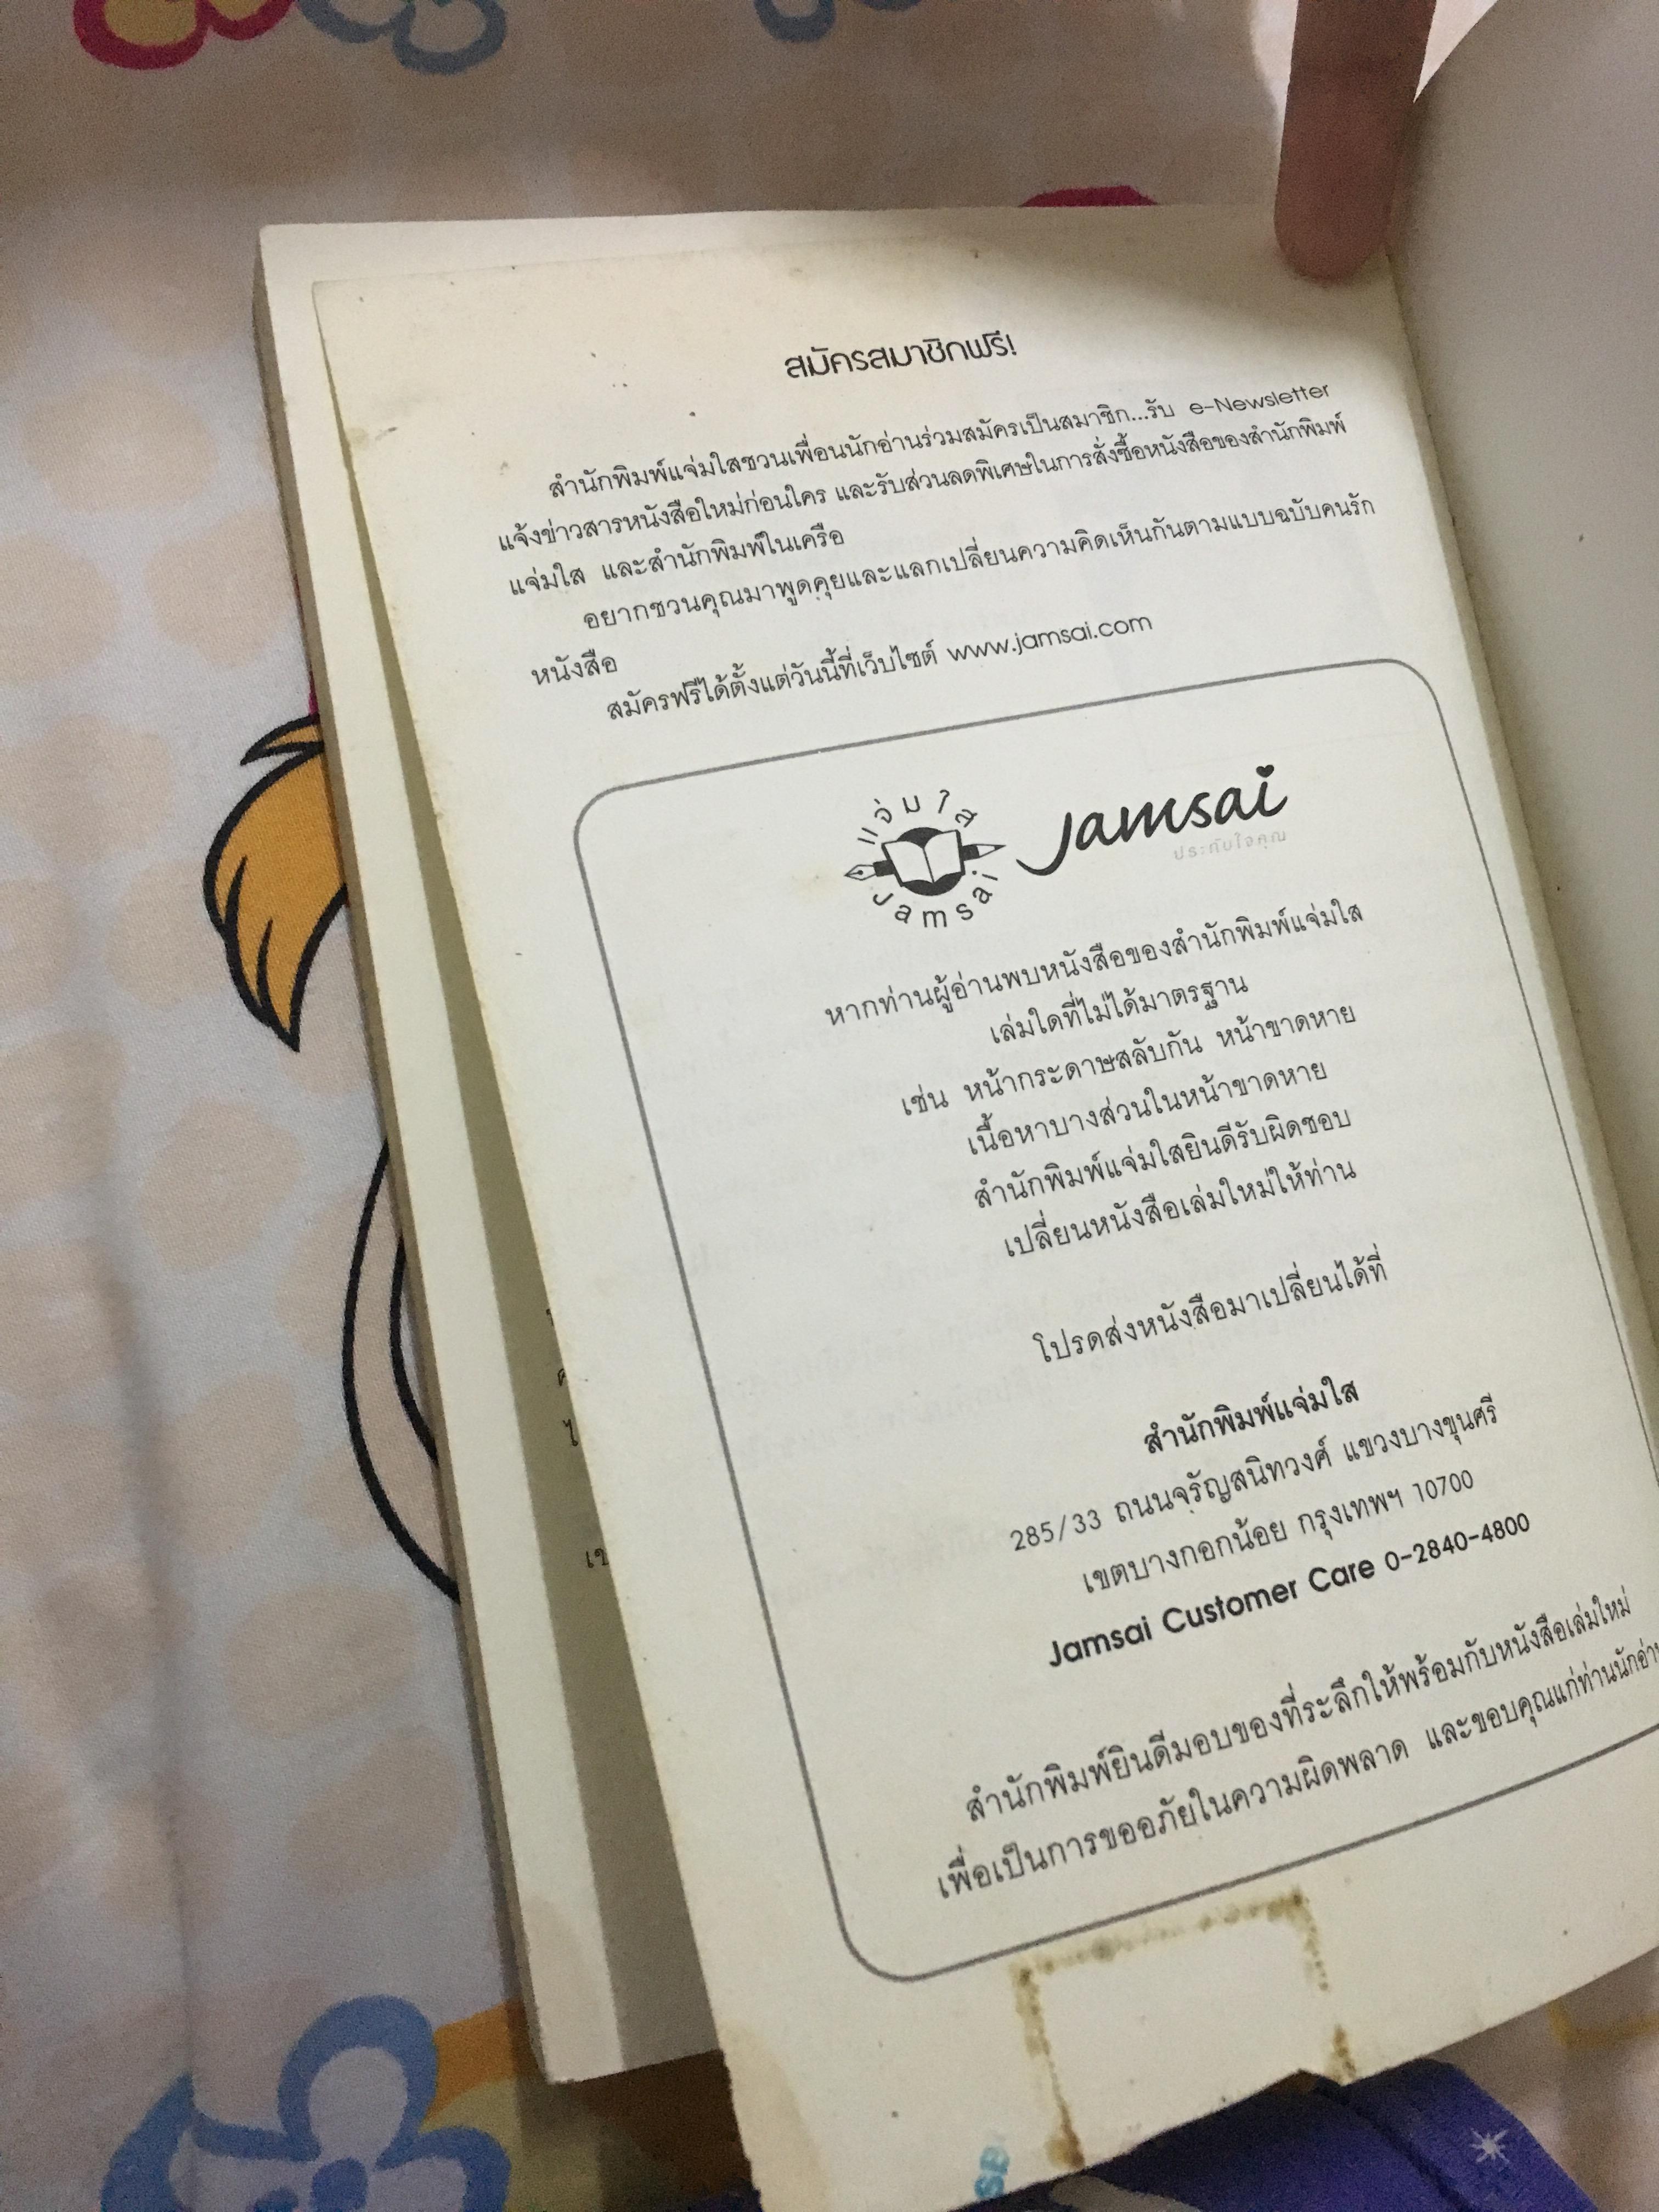 สมัครสมาชิกฟรี!
สำนักพิมพ์แจ่มใสชวนเพื่อนนักอ่านร่วมสมัครเป็นสมาชิก...รับ e-Newsletter
แจ้งข่าวสารหนังสือใหม่ก่อนใคร และรับส่วนลดพิเศษในการสั่งซื้อหนังสือของสำนักพิมพ์
แจ่มใส และสำนักพิมพ์ในเครือ
อยากชวนคุณมาพูดคุยและแลกเปลี่ยนความคิดเห็นกันตามแบบฉบับคนรัก
หนังสือ
สมัครฟรีได้ตั้งแต่วันนี้ที่เว็บไซต์ www.jamsai.com
แจ่มใส
Jamsai
Jamsai
ประทับใจคุณ
หากท่านผู้อ่านพบหนังสือของสำนักพิมพ์แจ่มใส
เล่มใดที่ไม่ได้มาตรฐาน
เช่น หน้ากระดาษสลับกัน หน้าขาดหาย
เนื้อหาบางส่วนในหน้าขาดหาย
สำนักพิมพ์แจ่มใสยินดีรับผิดชอบ
เปลี่ยนหนังสือเล่มใหม่ให้ท่าน
โปรดส่งหนังสือมาเปลี่ยนได้ที่
สำนักพิมพ์แจ่มใส
285/33 ถนนจรัญสนิทวงศ์ แขวงบางขุนศรี
เขตบางกอกน้อย กรุงเทพฯ 10700
Jamsai Customer Care 0-2840-4800
สำนักพิมพ์ยินดีมอบของที่ระลึกให้พร้อมกับหนังสือเล่มใหม่
เพื่อเป็นการขออภัยในความผิดพลาด และขอบคุณแก่ท่านนักอ่าน
SB